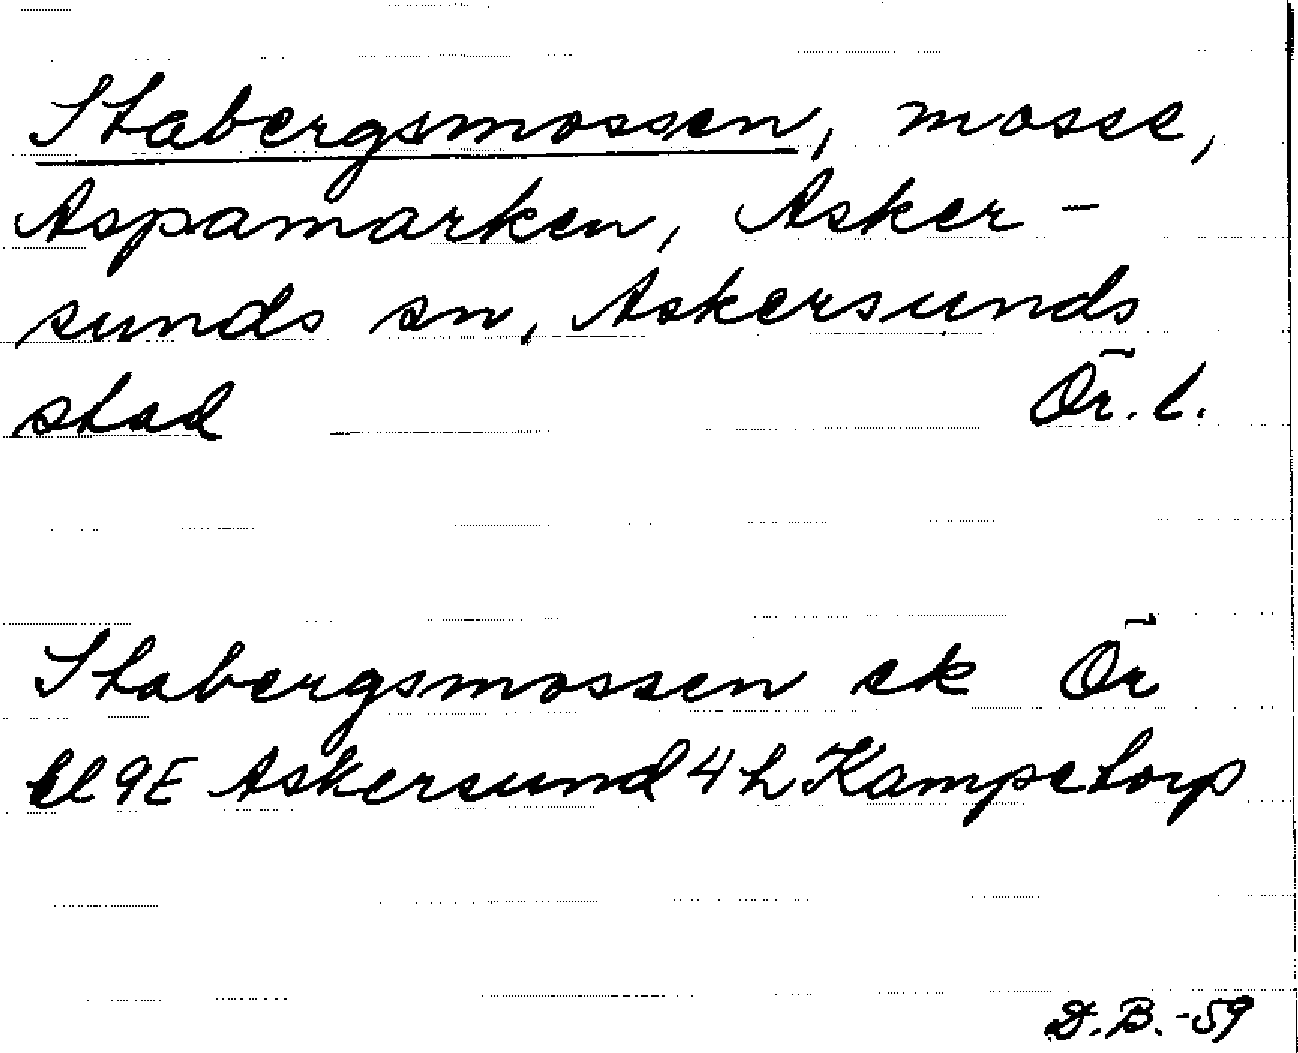 Stabergsmossen, mosse,
Aspamarken, Asker-
sunds sn, Askersunds
stad Ör. l.
Stabergsmossen ek Ör
bl 9E Askersund 4 h Kampetorp
D.B.-59